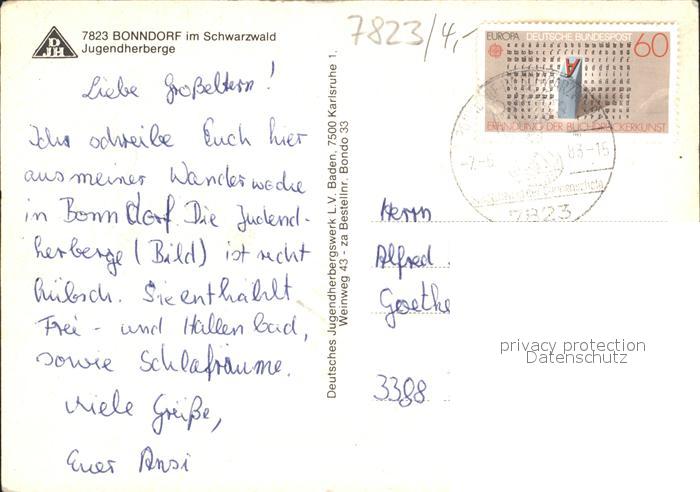 DJH
7823 BONNDORF im Schwarzwald
Jugendherberge
Liebe Großeltern!
Ich schreibe Euch hier
aus meiner Wanderwoche
in Bonndorf. Die Jugend-
herberge (Bild) ist recht
hübsch. Sie enthählt
Frei- und Hallenbad,
sowie Schlafräume.
Viele Grüße,
Euer
Deutsches Jugendherbergswerk L.V. Baden, 7500 Karlsruhe 1,
Weinweg 43 - za Bestellnr. Bondo 33
7823/4,-
EUROPA DEUTSCHE BUNDESPOST 60
ERFINDUNG DER BUCHDRUCKERKUNST
83-15
7823
Herrn
Alfred
Goethe
3388
privacy protection
Datenschutz